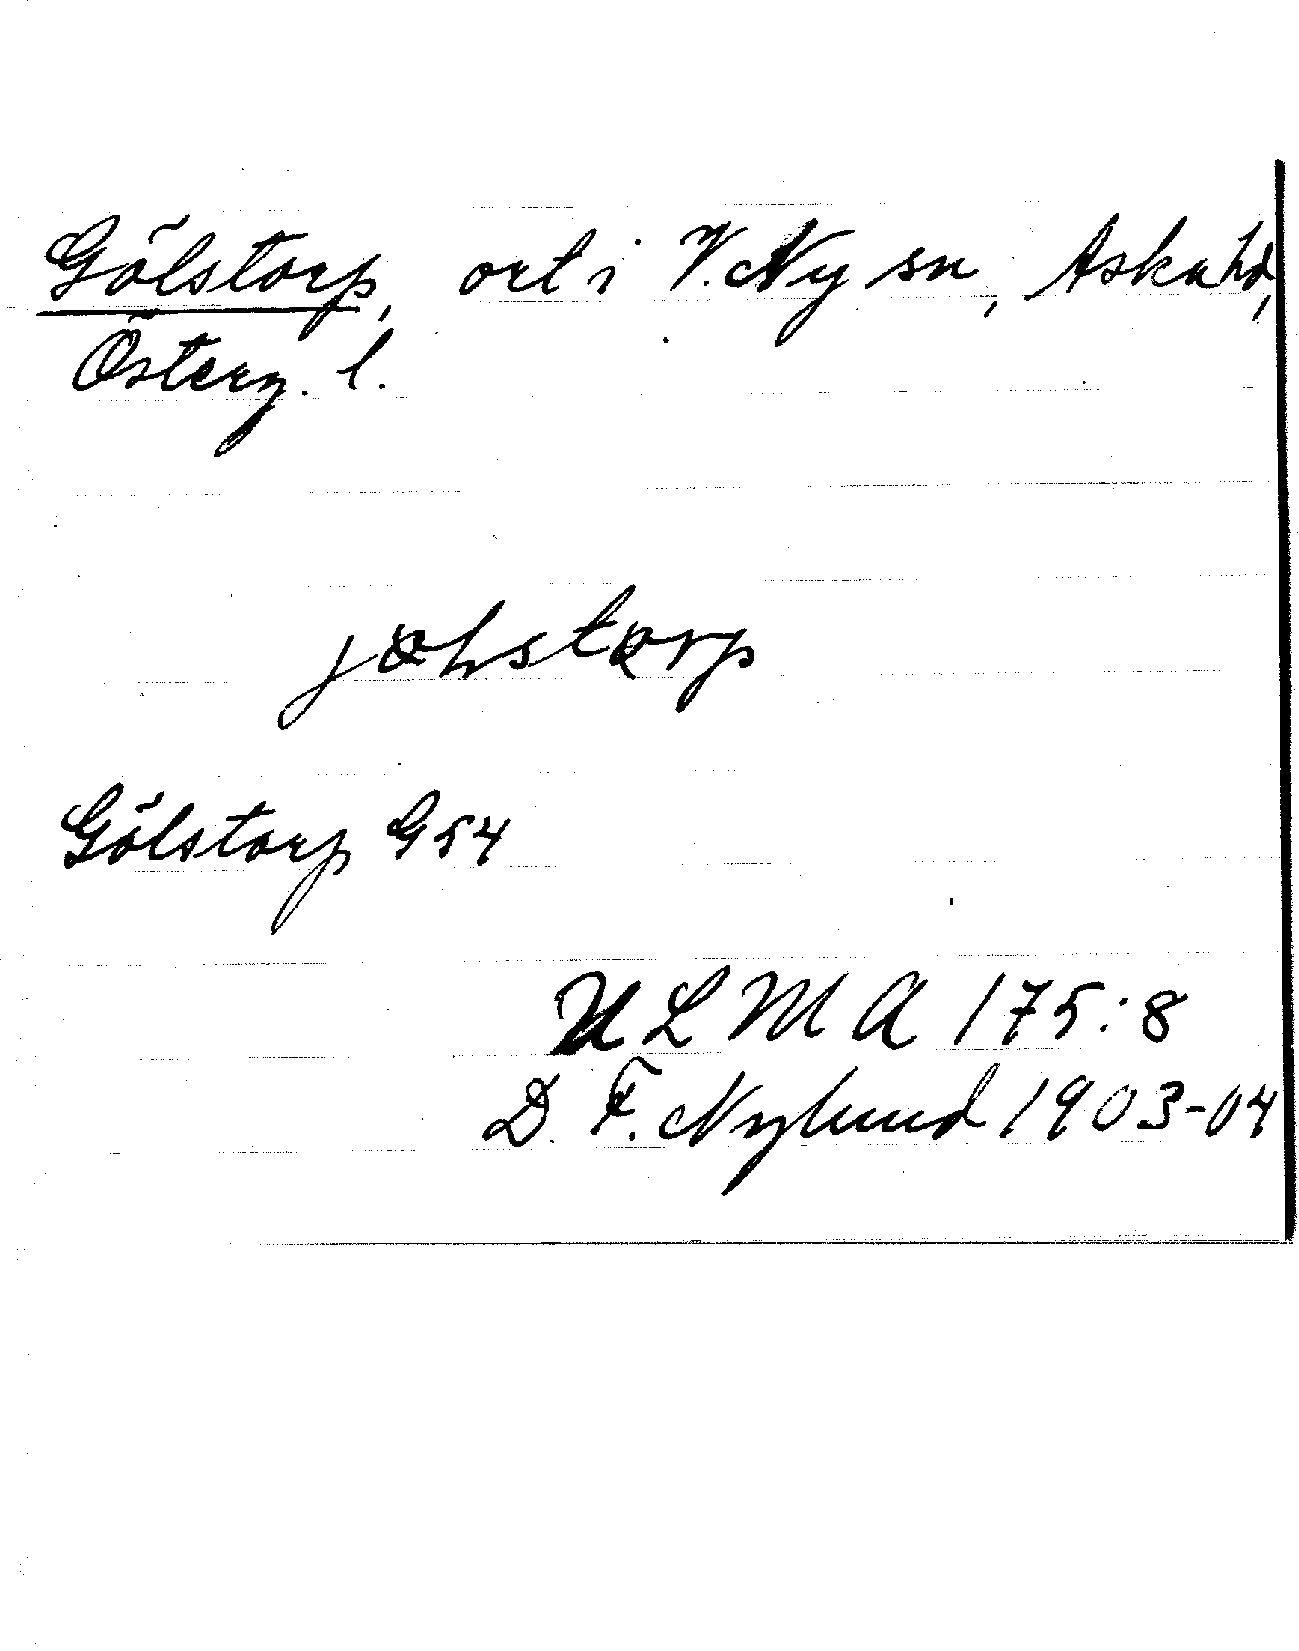 Gölstorp, ort i V. Ny sn, Aska hd,
Österg. l.
Gölstorp G 54
ULMA 175:8
D. F. Nylund 1903-04